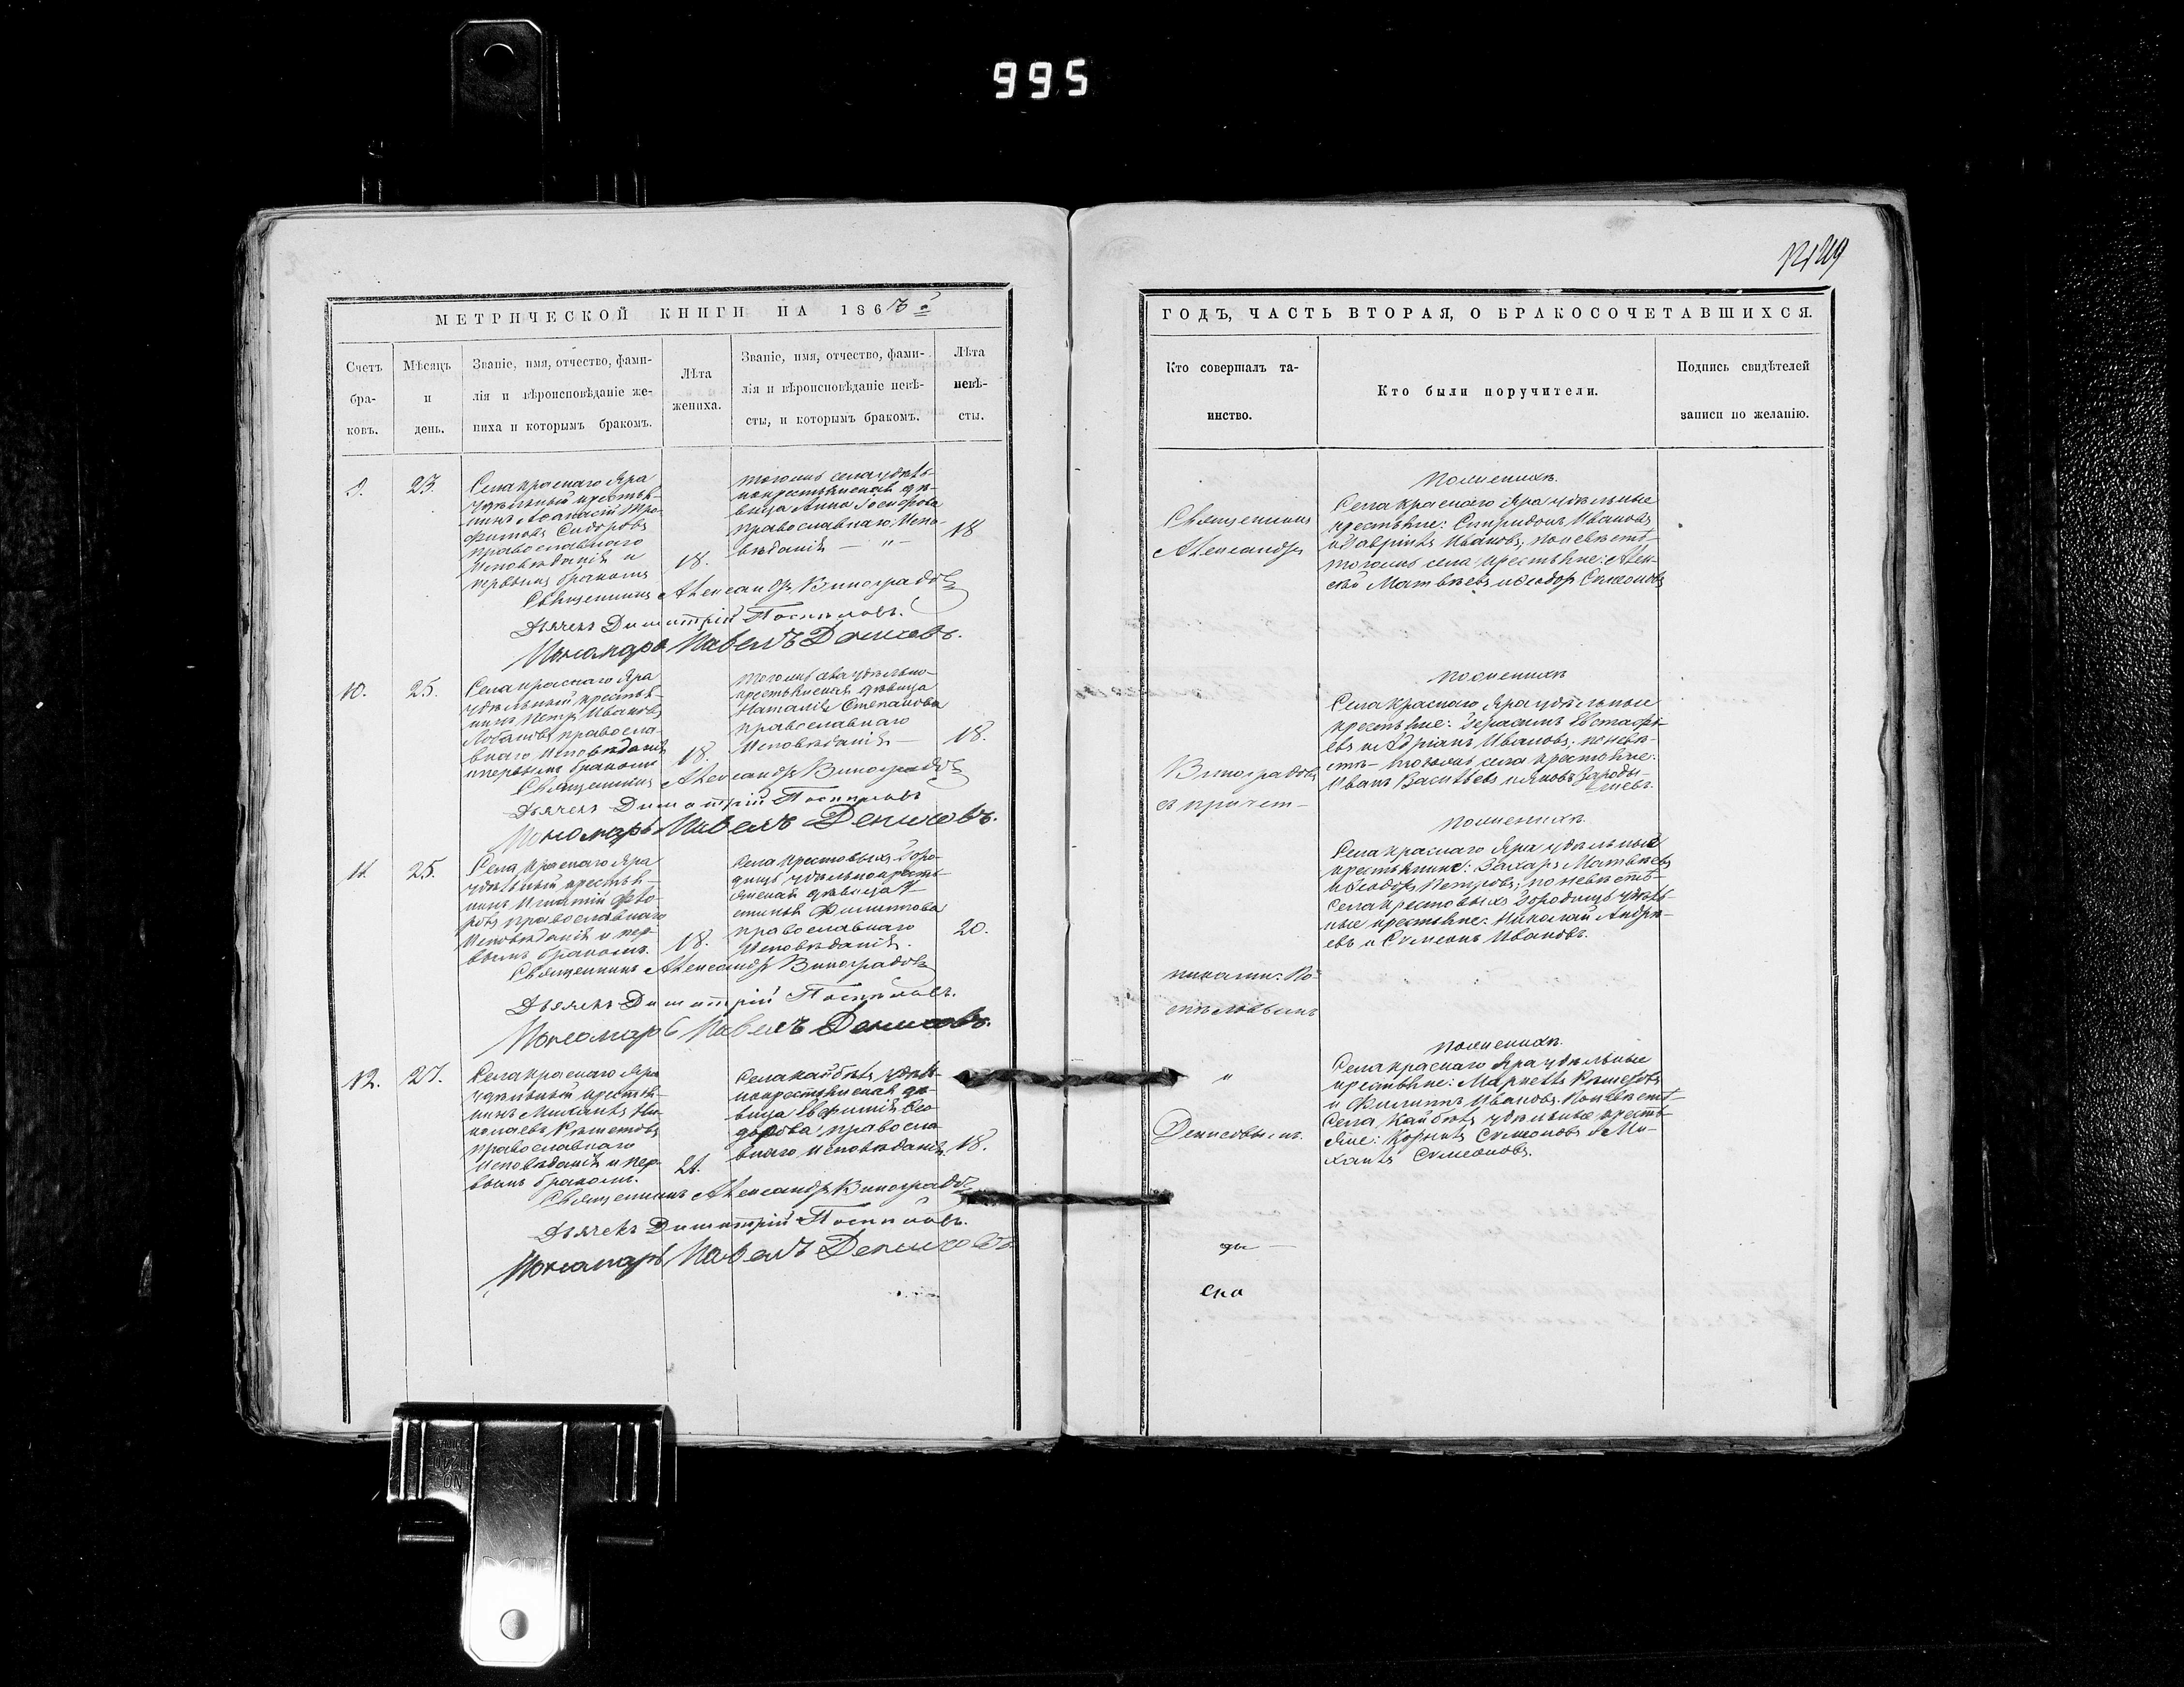 995
129
МЕТРИЧЕСКОЙ КНИГИ НА 186
Счетъ бра-ковъ.
Мѣсяцъ и день.
Званіе, имя, отчество, фами-
лія и вѣроисповѣданіе же-
ниха и которымъ бракомъ.
Лѣта
жениха.
Званіе, имя, отчество, фами-
лія и вѣроисповѣданіе невѣ-
сты, и которымъ бракомъ.
Лѣта
невѣ-
сты.
9.
23.
Села Краснаго Яра
удѣльный крестья-
нинъ Аѳанасій Тро-
фимовъ Сидоровъ
православнаго
исповѣданія и
первымъ бракомъ
18.
тогожъ села удѣль-
нокрестьянская дѣ-
вица Анна
православнаго испо-
вѣданія — " —
18
Священникъ Александръ Виноградовъ
Дьячекъ Димитрій Поспѣловъ.
Пономарь Павелъ Денисовъ.
10.
25.
Села Краснаго Яра
удѣльный крестья-
нинъ Петръ Ивановъ
Лобановъ правосла-
внаго исповѣданія
и первымъ бракомъ
18.
тогожъ села удѣльно-
крестьянская дѣвица
Наталія Степанова
православнаго
исповѣданія —
18.
Священникъ Александръ Виноградовъ
Дьячекъ Димитрій Поспѣловъ
Пономарь Павелъ Денисовъ.
11
25.
Села Краснаго Яра
удѣльный крестья-
нинъ Игнатій
православнаго
исповѣданія и пер-
вымъ бракомъ.
18.
Села Крестовыхъ Горо-
дищъ удѣльнокресть-
янская дѣвица
Филиппова
православнаго
исповѣданія.
20.
Священникъ Александръ Виноградовъ
Дьячекъ Димитрій Поспѣловъ.
Пономарь Павелъ Денисовъ.
12.
27.
Села Краснаго Яра
удѣльный крестья-
нинъ Михаилъ Ни-
колаевъ Рѣшетовъ
православнаго
исповѣданія и пер-
вымъ бракомъ.
21.
Села Кайбелъ удѣль-
нокрестьянская дѣ-
вица Евфимія Ѳео-
дорова правосла-
внаго исповѣданія.
18.
Священникъ Александръ Виноградовъ
Дьячекъ Димитрій Поспѣловъ.
Пономарь Павелъ Денисовъ
ГОДЪ, ЧАСТЬ ВТОРАЯ, О БРАКОСОЧЕТАВШИХСЯ.
Кто совершалъ та-
инство.
Кто были поручители.
Подпись свидѣтелей
записи по желанію.
Священникъ
Александръ
Виноградовъ
съ причет-
никами: По-
спѣловымъ
и
Денисовымъ.
По женихѣ.
Села Краснаго Яра удѣльные
крестьяне: Спиридонъ Ивановъ
и Гавріилъ Ивановъ; по невѣстѣ
тогожъ села крестьяне: Алек-
сѣй Матвѣевъ и Ѳеодоръ Симеоновъ
По женихѣ
Села Краснаго Яра удѣльные
крестьяне: Герасимъ Евстафі-
евъ и Адріанъ Ивановъ; по невѣ-
стѣ — тогожъ села крестьяне:
Иванъ Васильевъ и Яковъ
По женихѣ.
Села Краснаго Яра удѣльные
крестьяне: Захаръ Матвѣевъ
и Ѳеодоръ Петровъ; по невѣстѣ
Села Крестовыхъ Городищъ удѣль-
ные крестьяне: Николай Андре-
евъ и Симеонъ Ивановъ.
По женихѣ.
Села Краснаго Яра удѣльные
крестьяне: Маркеллъ Рѣшетовъ
и Филиппъ Ивановъ. По невѣстѣ
Села Кайбелъ удѣльные кресть-
яне: Корнилъ Симеоновъ и Ми-
хаилъ Симеоновъ.